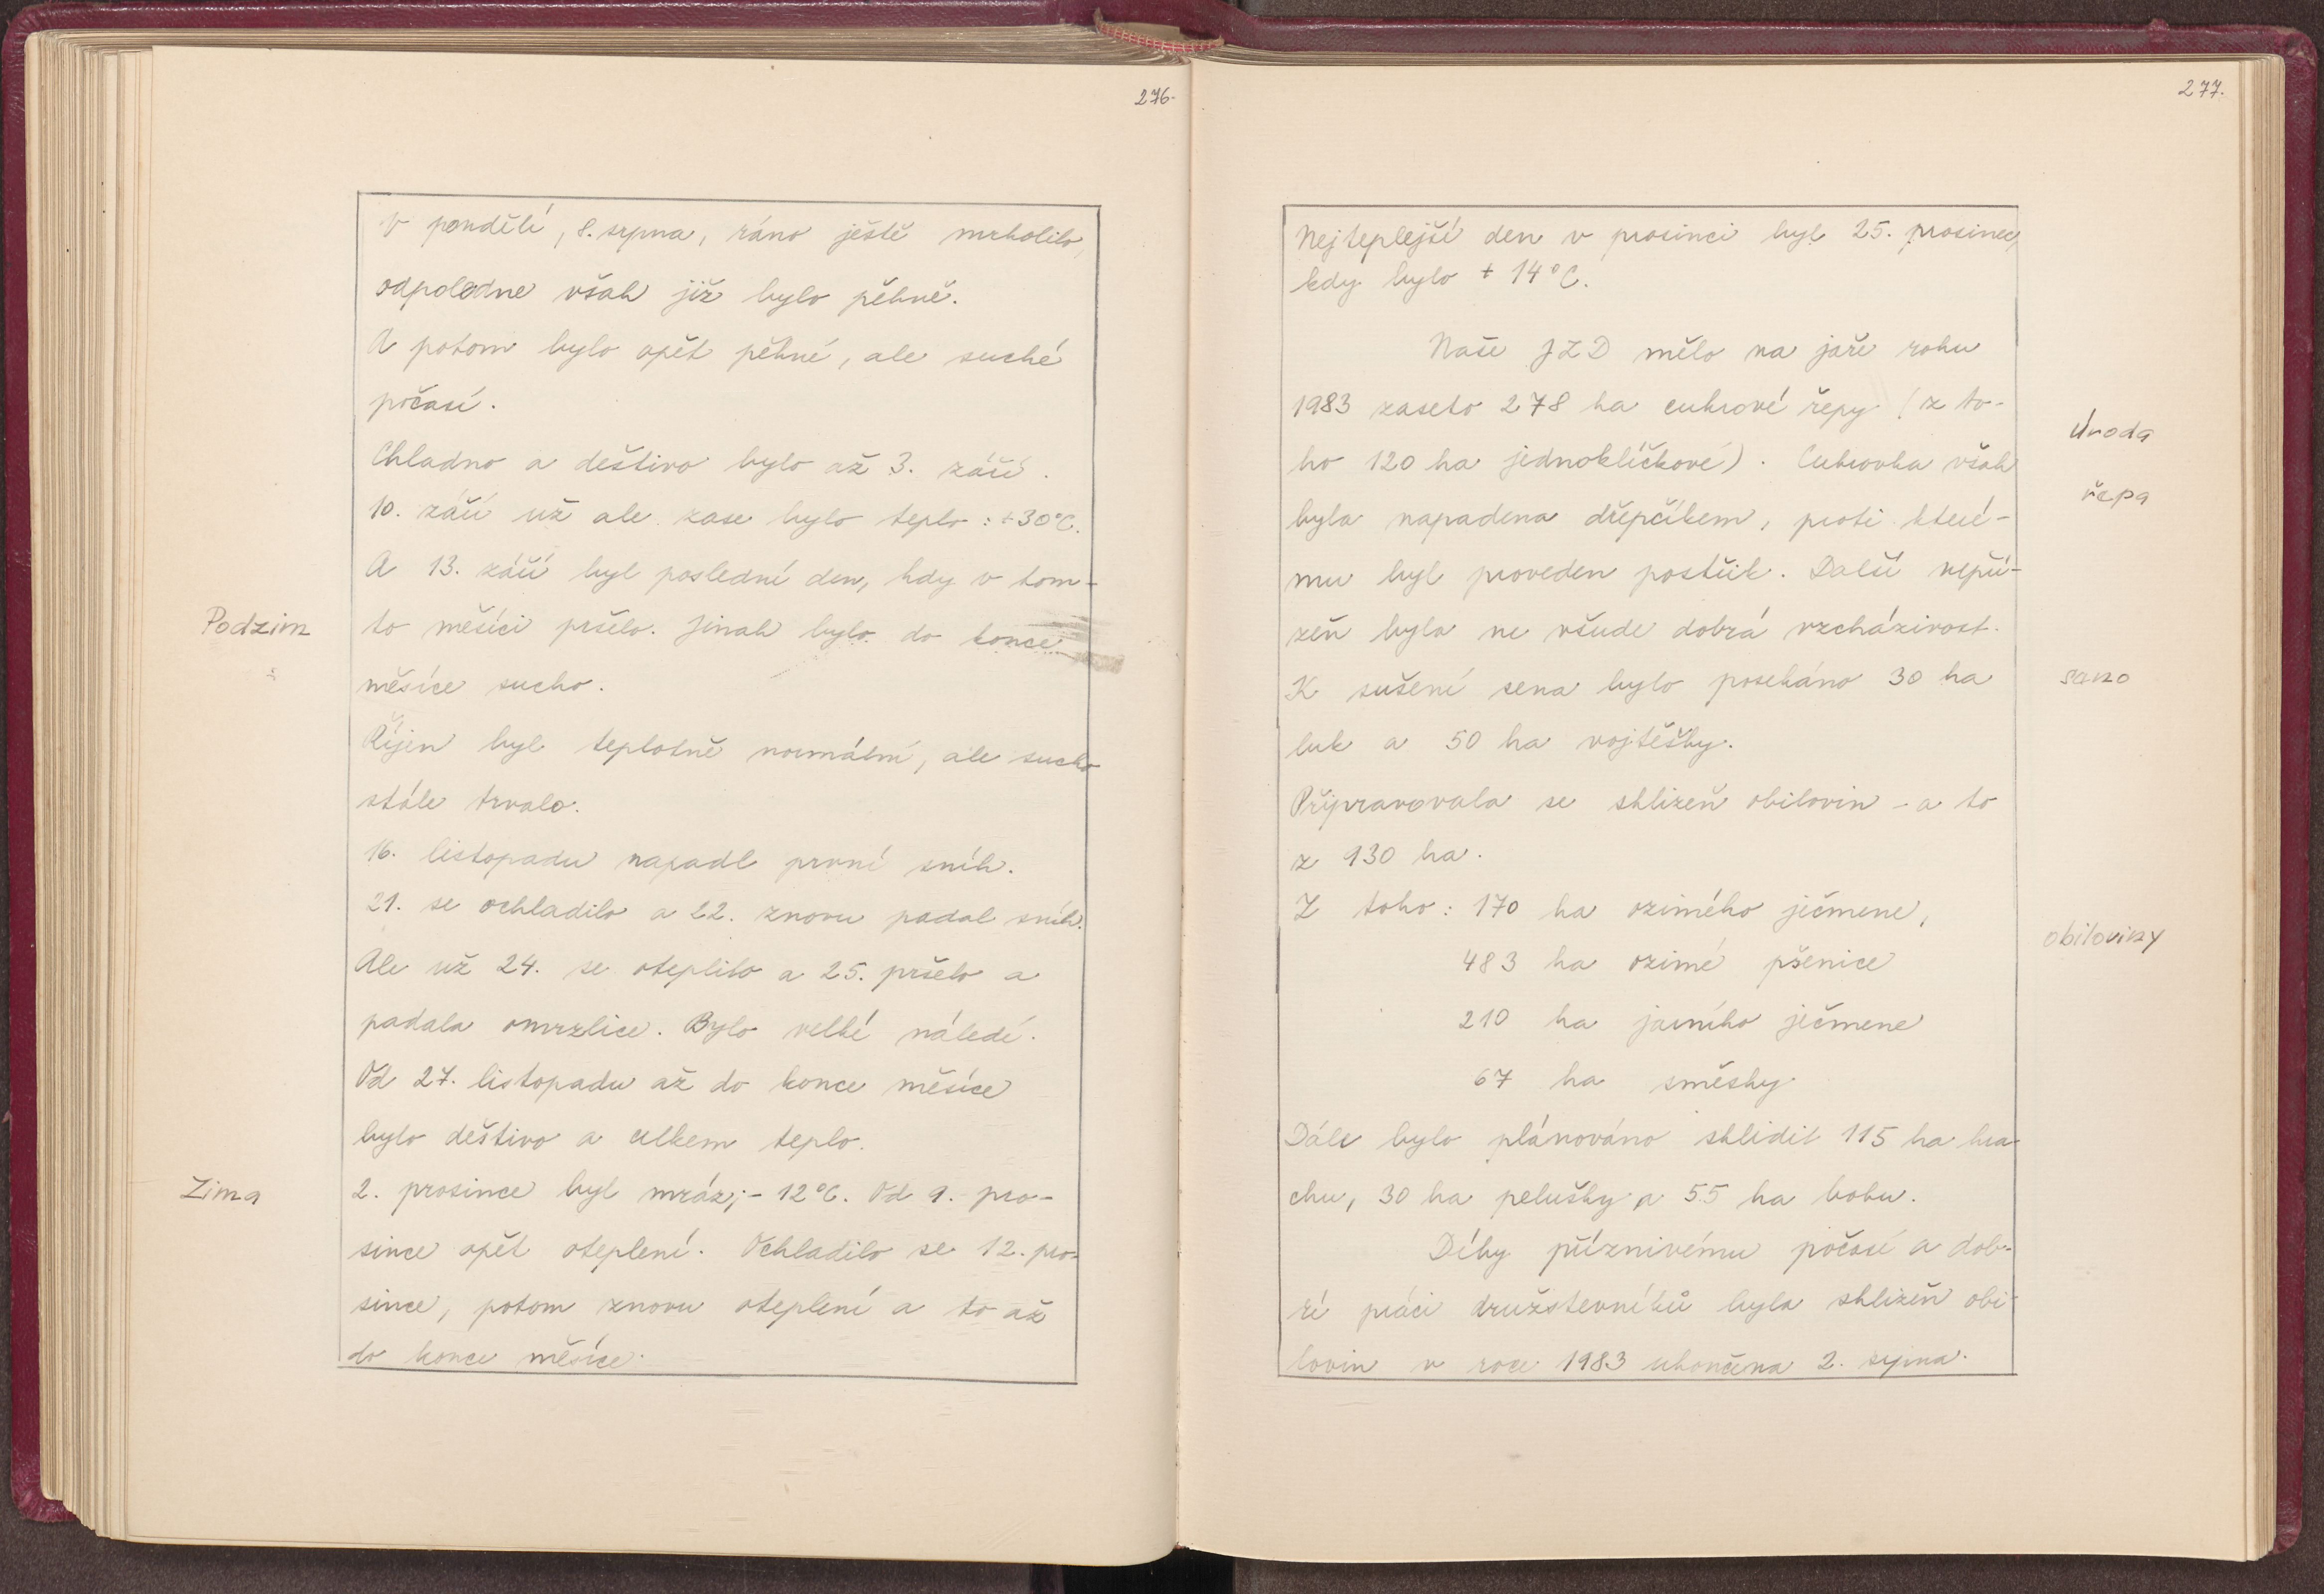 276.
V pondělí, 8. srpna, ráno ještě mrholilo,
odpoledne však již bylo pěkně.
A potom bylo opět pěkné, ale suché
počasí.
Chladno a deštivo bylo až 3. září.
10. září už ale zase bylo teplo: +30°C.
A 13. září byl poslední den, kdy v tom-
Podzim
to měsíci pršelo. Jinak bylo do konce
měsíce sucho.
Říjen byl teplotně normální, ale sucho
stále trvalo.
16. listopadu napadl první sníh.
21. se ochladilo a 22. znovu padal sníh.
Ale už 24. se oteplilo a 25. pršelo a
padala omrzlice. Bylo velké náledí.
Od 27. listopadu až do konce měsíce
bylo deštivo a celkem teplo.
Zima
2. prosince byl mráz; - 12°C. Od 9. pro-
since opět oteplení. Ochladilo se 12. pro-
since, potom znovu oteplení a to až
do konce měsíce.
277.
Nejteplejší den v prosinci byl 25. prosinec,
kdy bylo + 14°C.
Naše JZD mělo na jaře roku
1983 zaseto 278 ha cukrové řepy (z to-
Úroda
ho 120 ha jednoklíčkové). Cukrovka však
řepa
byla napadena dřepčíkem, proti které-
mu byl proveden postřik. Další nepří-
zeň byla ne všude dobrá vzcházivost.
K sušení sena bylo posekáno 30 ha
seno
luk a 50 ha vojtěšky.
Připravovala se sklizeň obilovin - a to
z 930 ha.
Z toho: 170 ha ozimého ječmene,
obiloviny
483 ha ozimé pšenice
210 ha jarního ječmene
67 ha směsky
Dále bylo plánováno sklidit 115 ha hra-
chu, 30 ha pelušky a 55 ha bobu.
Díky příznivému počasí a dob-
ré práci družstevníků byla sklizeň obi-
lovin v roce 1983 ukončena 2. srpna.